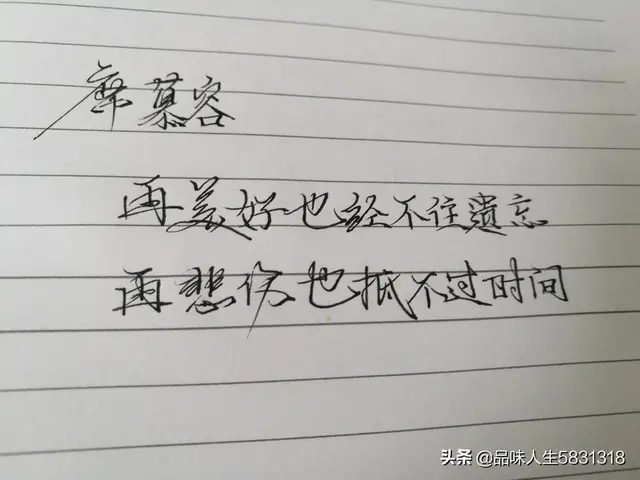 席慕容
再美好也经不住遗忘
再悲伤也抵不过时间
头条 @品味人生5831318